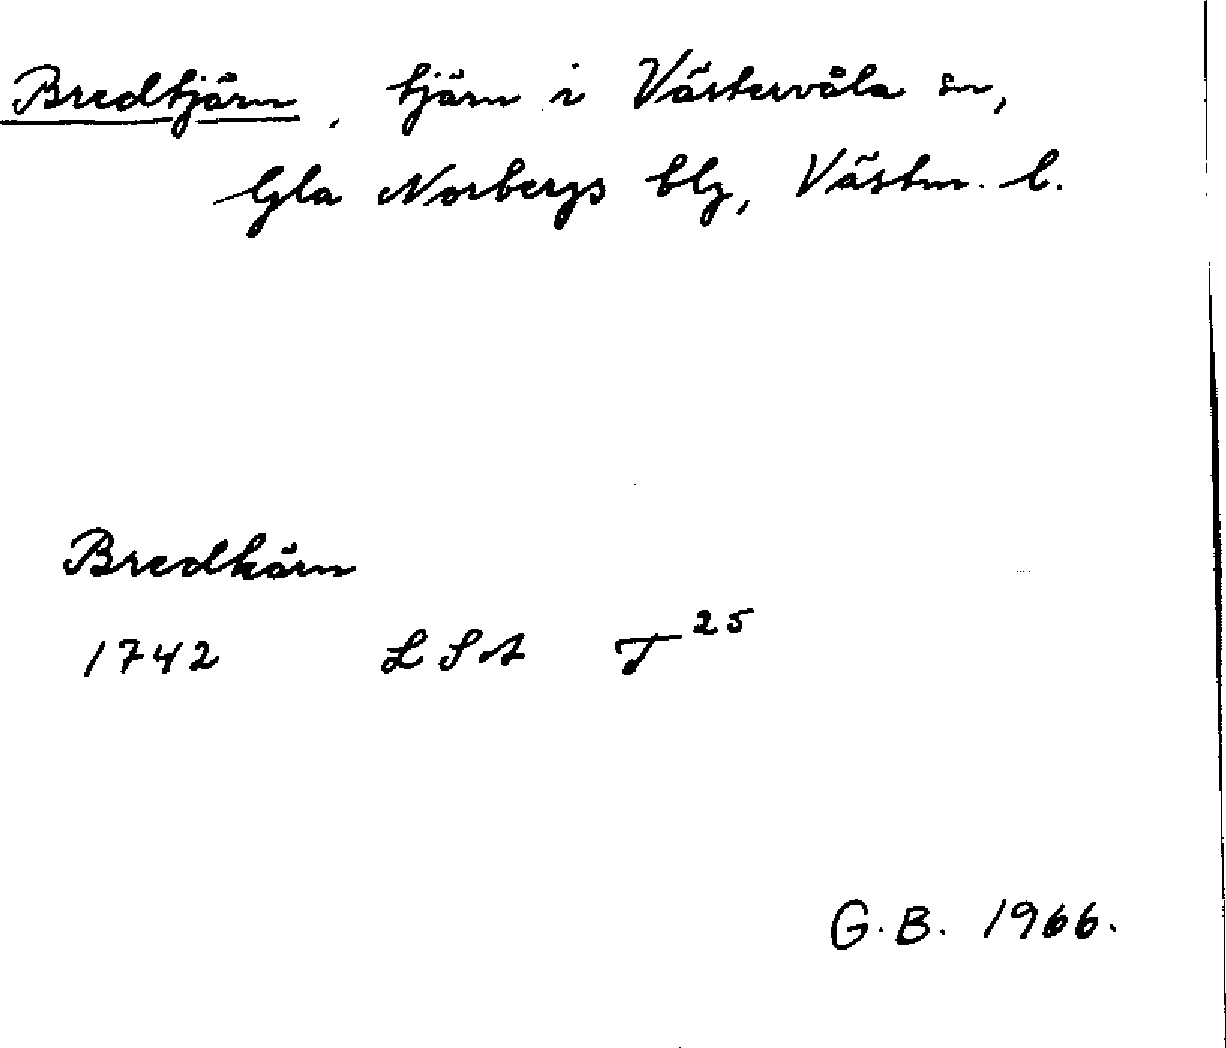 Bredtjärn, tjärn i Västervåla sn,
Gla Norbergs blg, Västm. l.
Bredkärn
1742 LSA T 25
G.B. 1966.